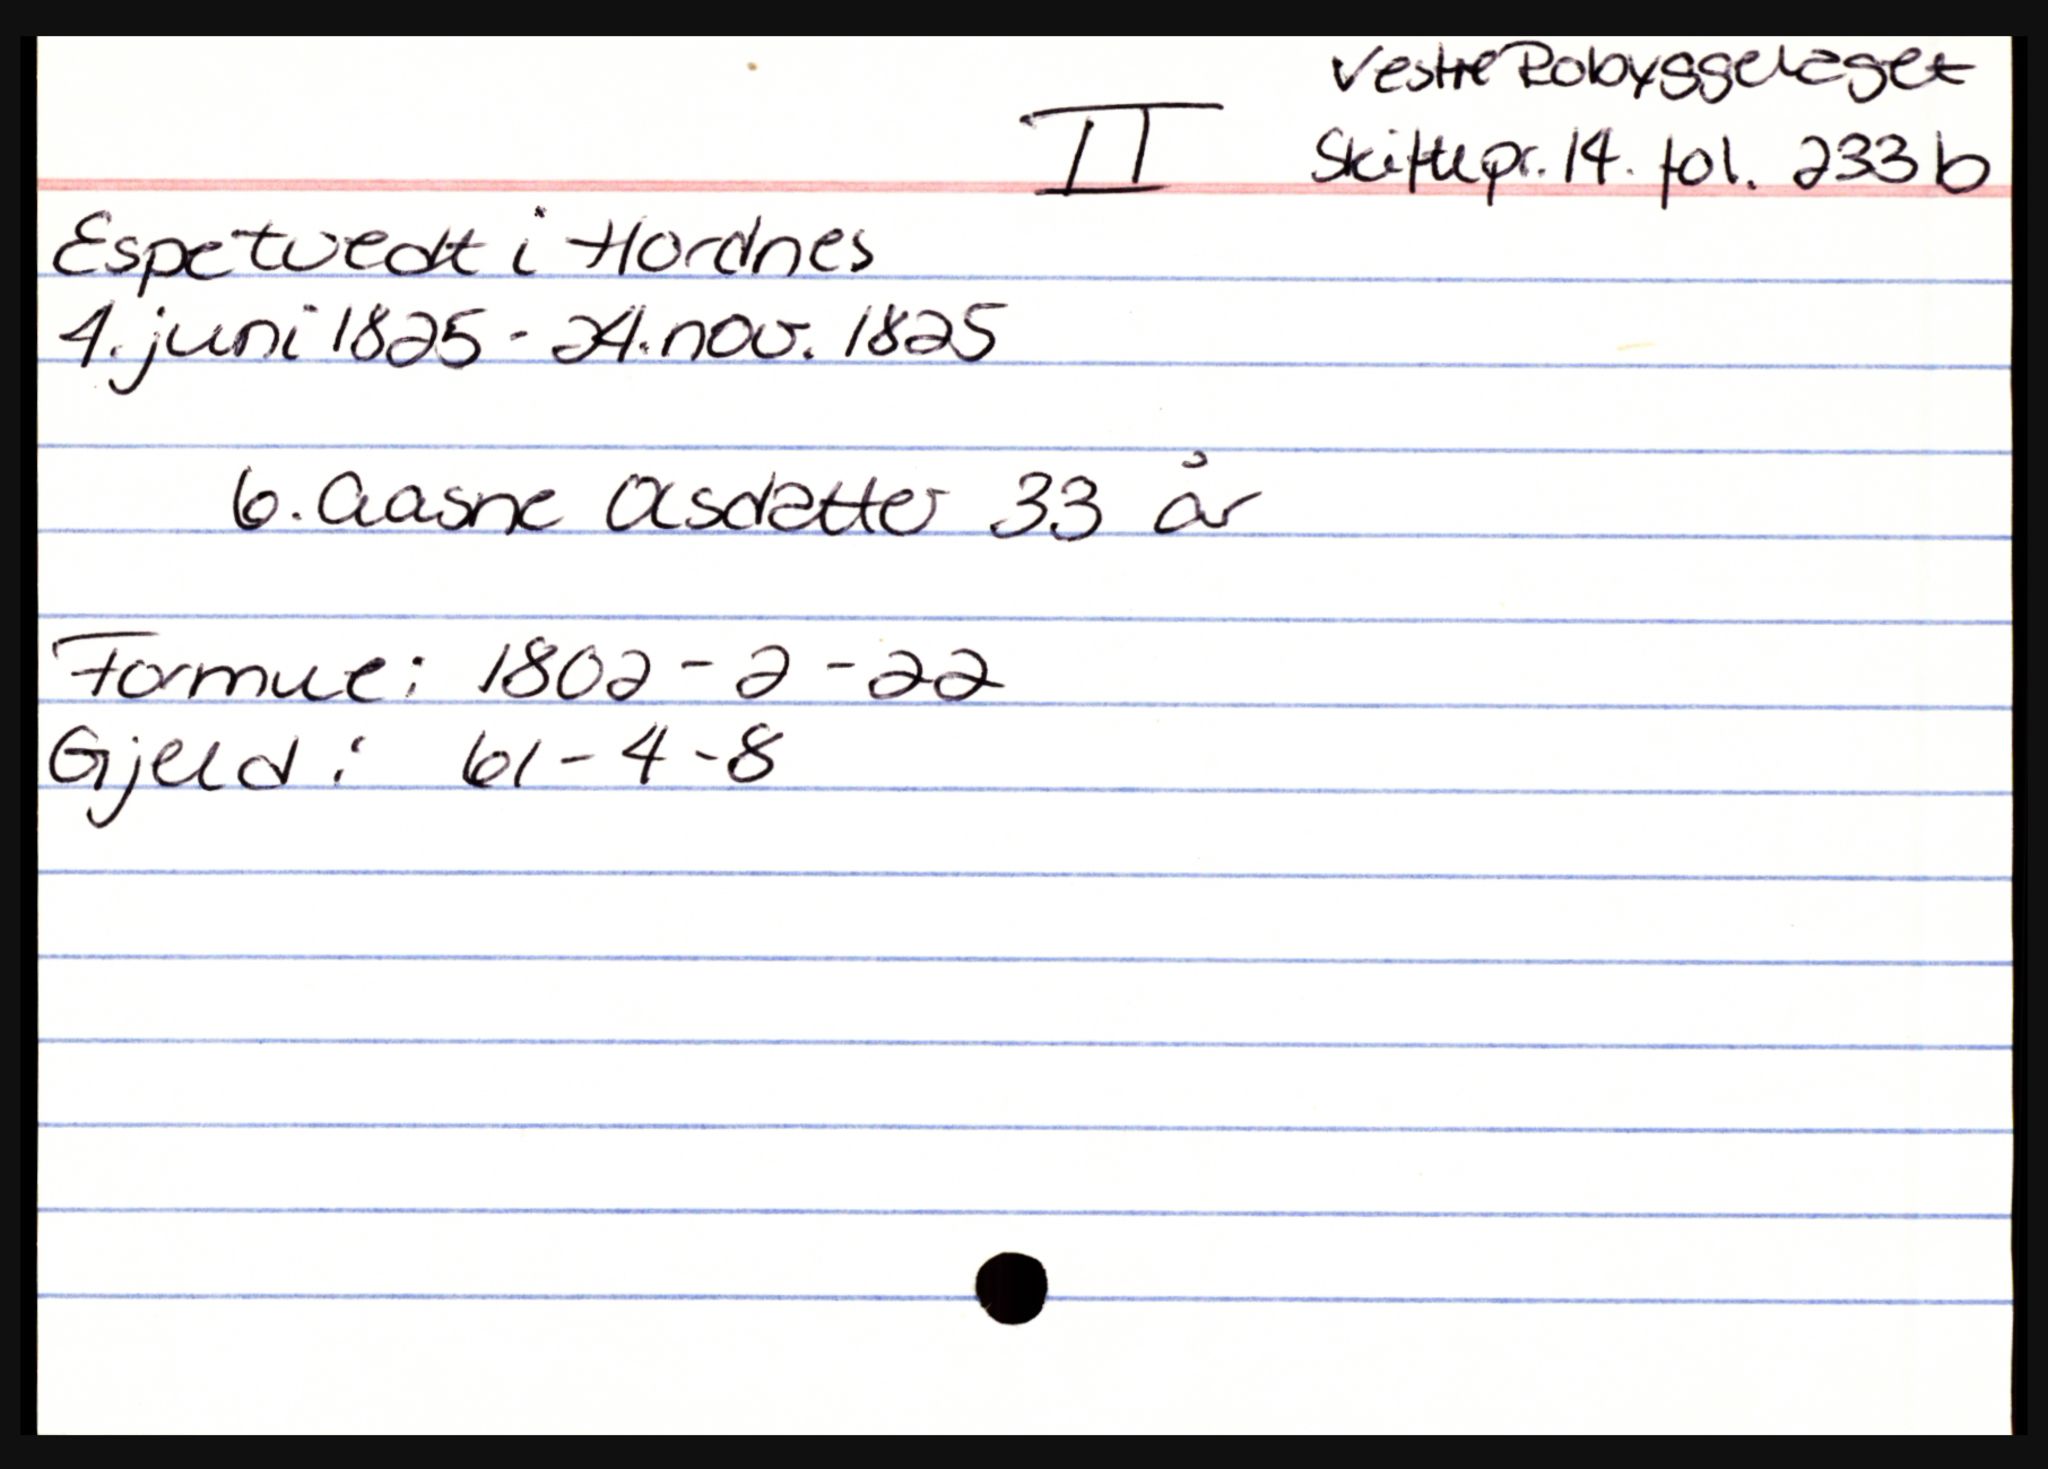 Vestre Robyggelaget
II
Skiftepr. 14. fol. 233b
Espetvedt i Hordnes
4. juni 1825 - 24. nov. 1825
6. Aasne Asdatter 33 år
Formue: 1802 - 2 - 22
Gjeld: 61 - 4 - 8